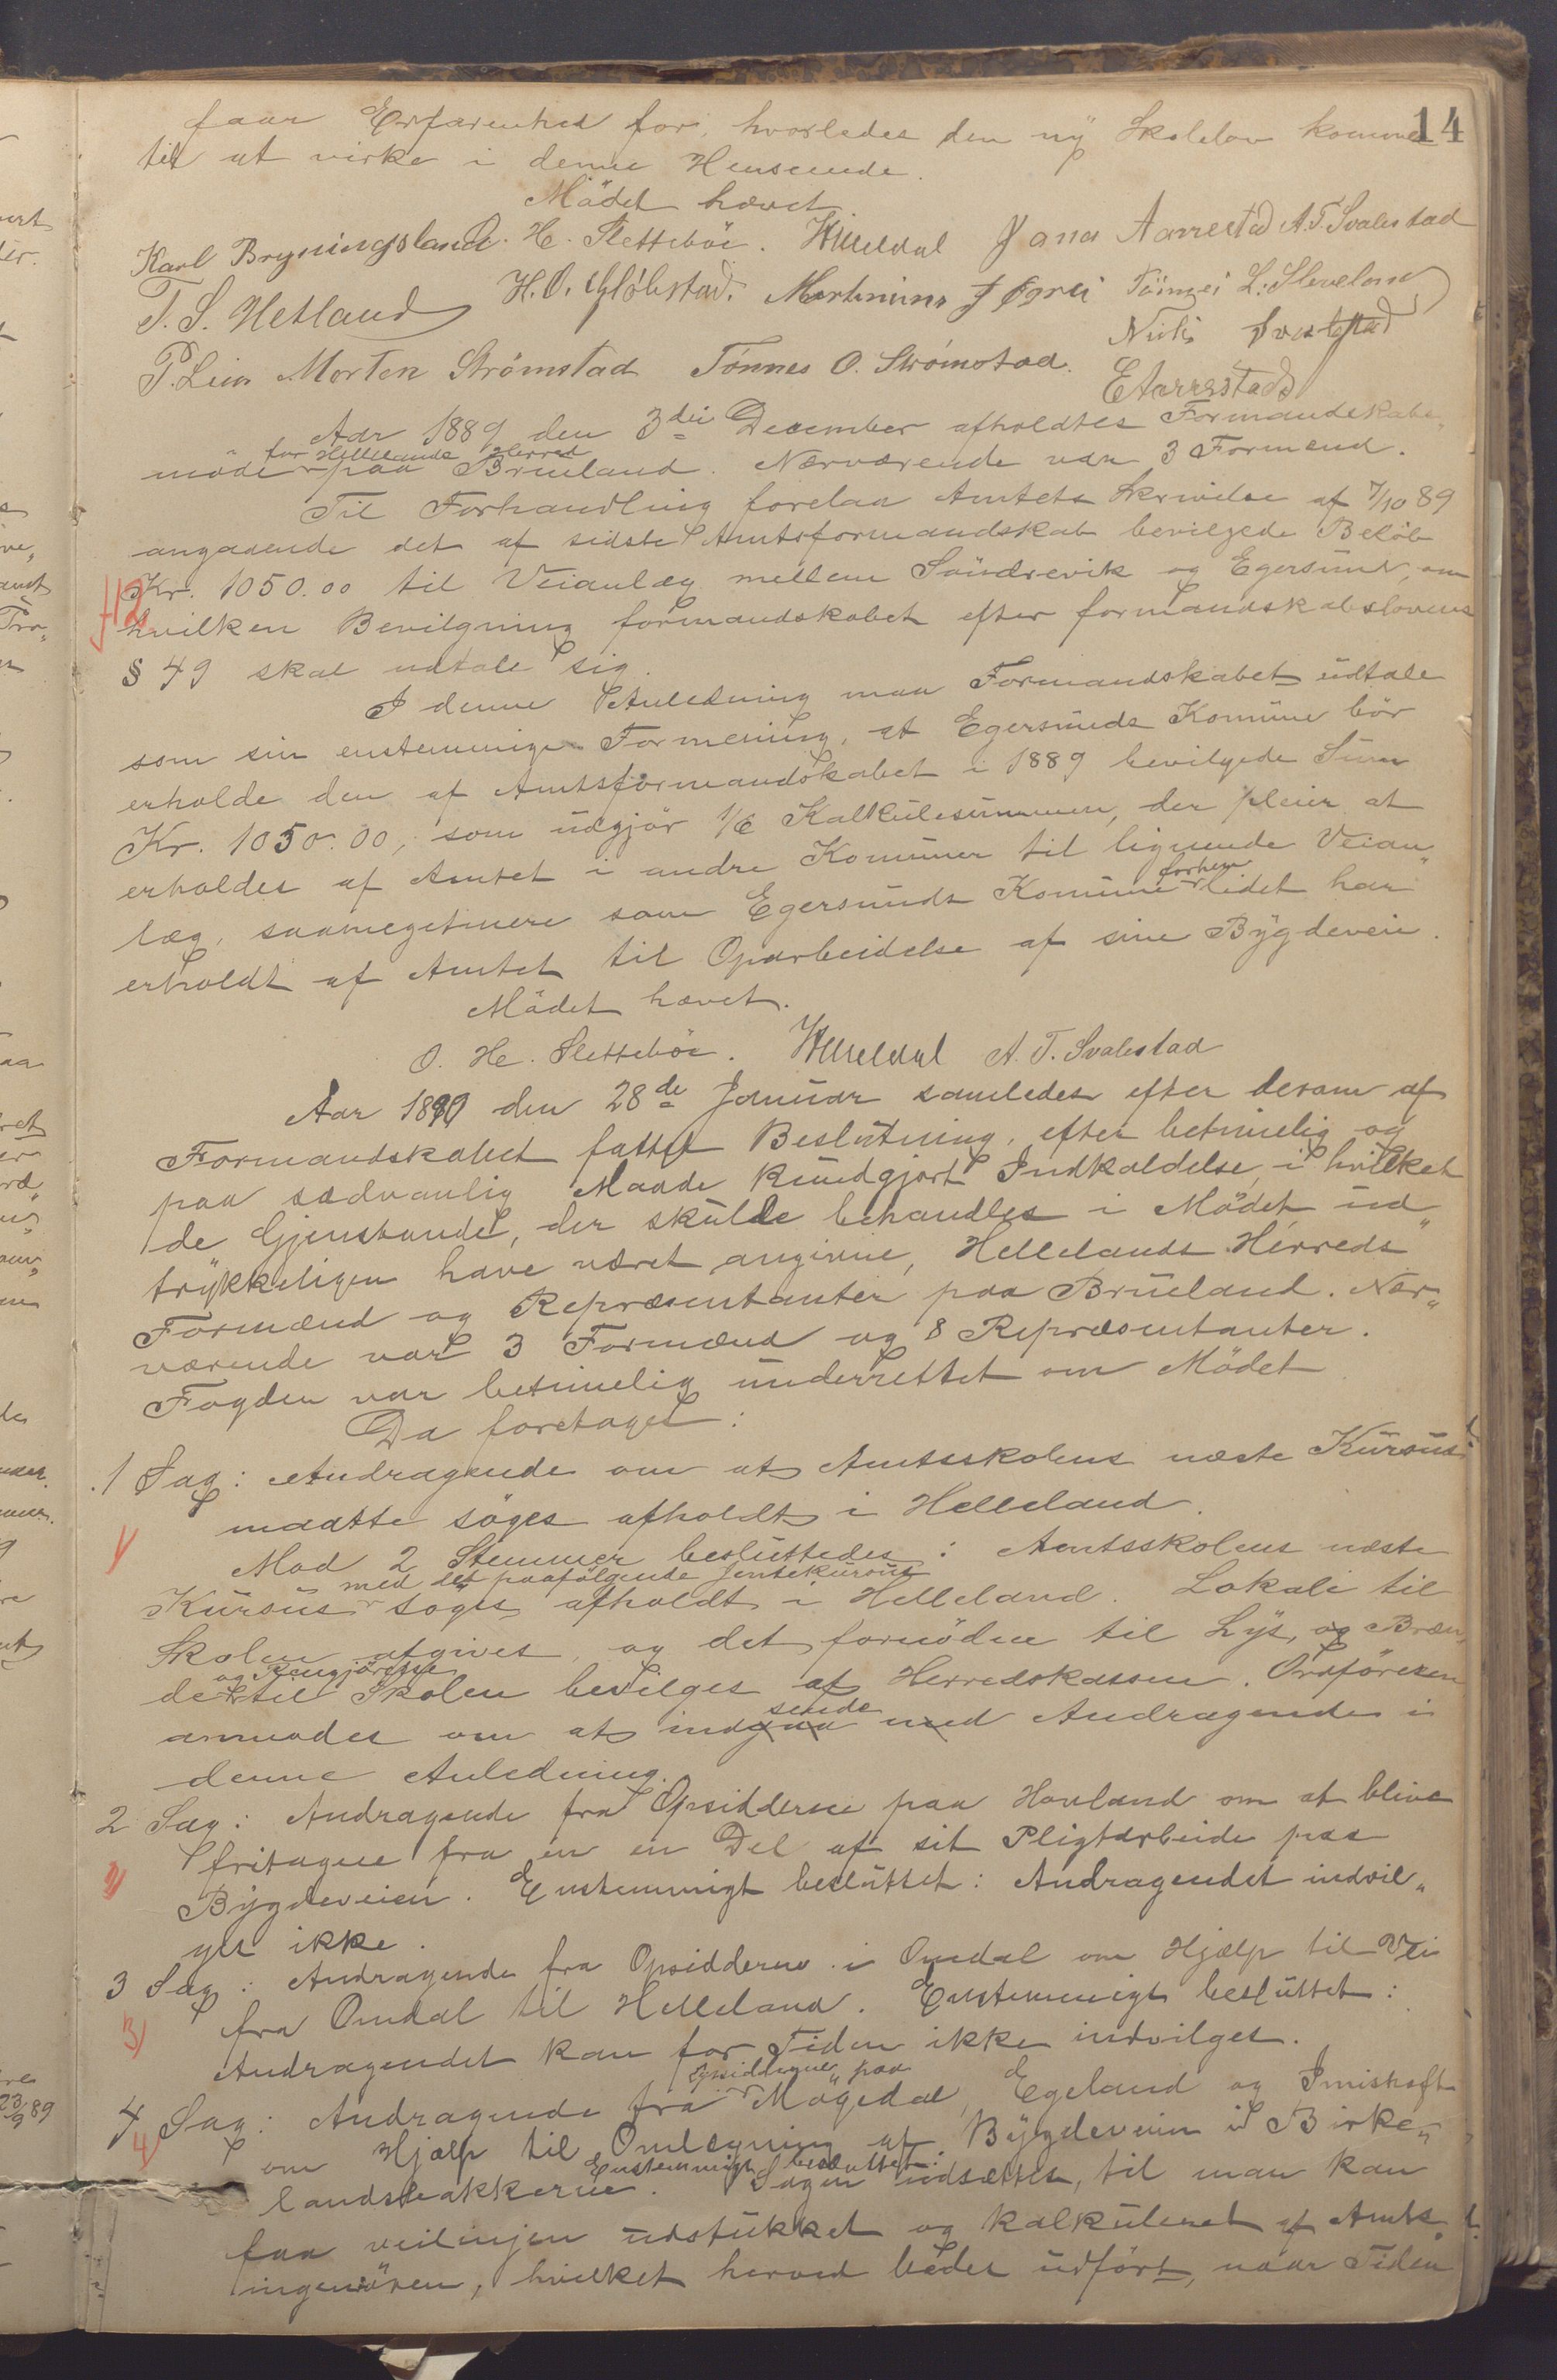 14
faar Erfarenhed for, hvorledes den ny Skolelov kommer
til at virke i denne Henseende.
Mödet hævet
Karl Bryningsland. O. H. Sletteböe. Jonas Aarrestad A. T. Svalestad
T. S. Hetland H. O. Gjöbstad. Martinius Tönnes L. Sleveland
P. Lien Morten Strömstad Tönnes O. Strömstad. Nils
E Aarrestad
Aar 1889 den 3die December afholdtes Formandskabs„
möde for Hellelands Herred paa Brueland. Nærværende var 3 Formænd.
Til Forhandling forelaa Amtets Skrivelse af 7/10 89
angaaende det af sidste Amtsformandskab bevilgede Belöb
Kr. 1050.00 til Veianlæg mellem Söndrevik og Egersund, om
hvilken Bevilgning formandskabet efter formandskabslovens
§ 49 skal udtale sig.
I denne Anledning maa Formandskabet udtale
som sin enstemmige Formening, at Egersunds Komune bör
erholde den af Amtsformandskabet i 1889 bevilgede Sum
Kr. 1050.00, som udgjör 1/6 Kalkulesummen, der pleier at
erholdes af Amtet i andre Komuner til lignende Veian„
læg, saameget mere som Egersunds Komune forhen lidet har
erholdt af Amtet til Oparbeidelse af sine Bygdeveie.
Mödet hævet.
O. H. Sletteböe. A. T. Svalestad
Aar 1890 den 28de Januar samledes efter derom af
Formandskabet fattet Beslutning, efter betimelig og
paa sædvanlig Maade kundgjort Indkaldelse, i hvilket
de Gjenstande, der skulde behandles i Mödet ud„
trykkeligen have været angivne, Hellelands Herreds
Formænd og Repræsentanter paa Brueland. Nær„
værende var 3 Formænd og 8 Repræsentanter.
Fogden var betimelig underrettet om Mödet
Da foretoges:
1 Sag: Andragende om at Amtsskolens næste Kursus
maatte söges afholdt i Helleland.
1) Mod 2 Stemmer besluttedes: Amtsskolens næste
Kursus med det paafölgende Jentekursus söges afholdt i Helleland. Lokale til
Skolen afgives, og det fornödne til Lys, og Bræn„
de og Rengjörelse til Skolen bevilges af Herredskassen. Ordföreren
anmodes om at indgaa sende med Andragende i
denne Anledning.
2 Sag: Andragende fra Opsidderne paa Hovland om at blive
fritagne fra en en Del af sit Pligtarbeide paa
2) Bygdeveien. Enstemmigt besluttet: Andragendet indvil„
ges ikke.
3 Sag: Andragende fra Opsidderne i Omdal om Hjælp til Vei
3) fra Omdal til Helleland. Enstemmigt besluttet:
Andragendet kan for Tiden ikke indvilges.
4 Sag: Andragende fra Opsidderne paa Mögedal, Egeland og
4) om Hjælp til Omlægning af Bygdeveien i Birke„
landsbakkerne. Enstemmigt besluttet: Sagen udsættes, til man kan
faa veilinjen udstukket og kalkuleret af Amts„
ingeniören, hvilket herved bedes udfört, naar Tiden